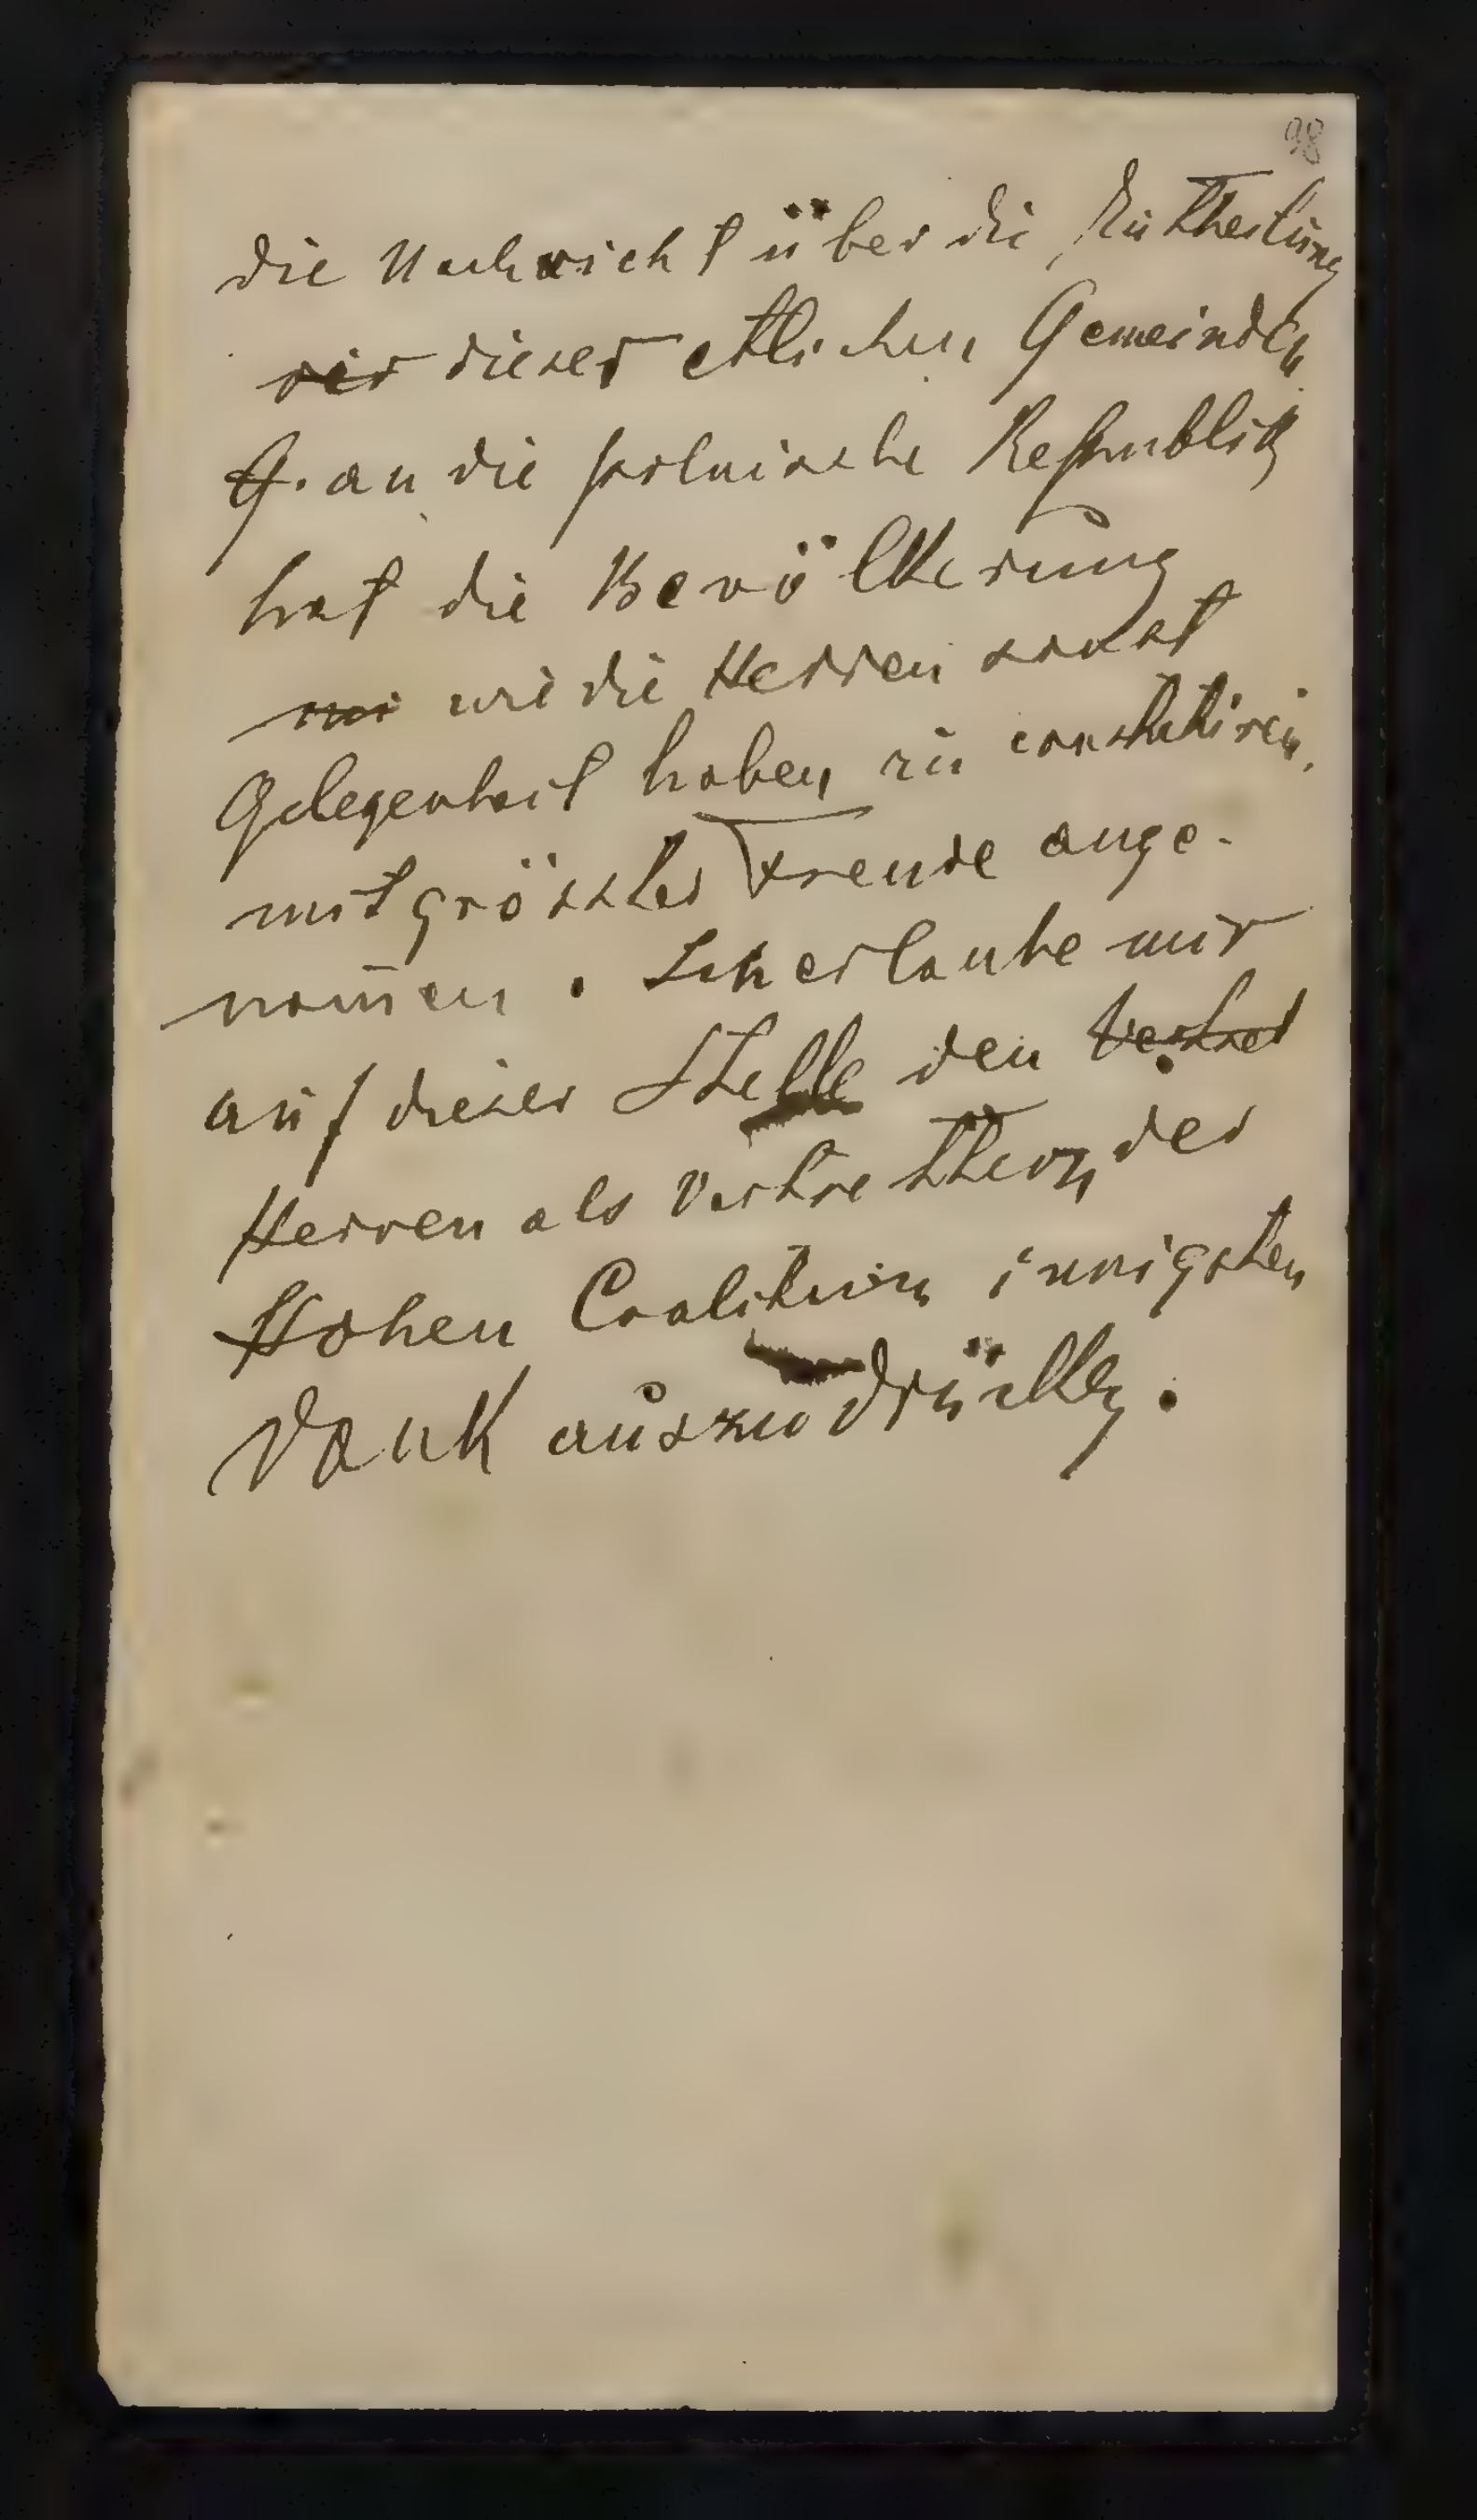 98
die Nachricht über die Zutheilung
dieser etlichen Gemeinden
G. an die polnische Republik
hat die Bevölkerung
wie die Herren sonst
Gelegenheit haben zu constatiren,
mit grösster Freude ange-
nom̄en. Ich erlaube mir
auf dieser Stelle den
Herren als Vertrettern der
Hohen Coalition innigsten
Dank auszudrücken.